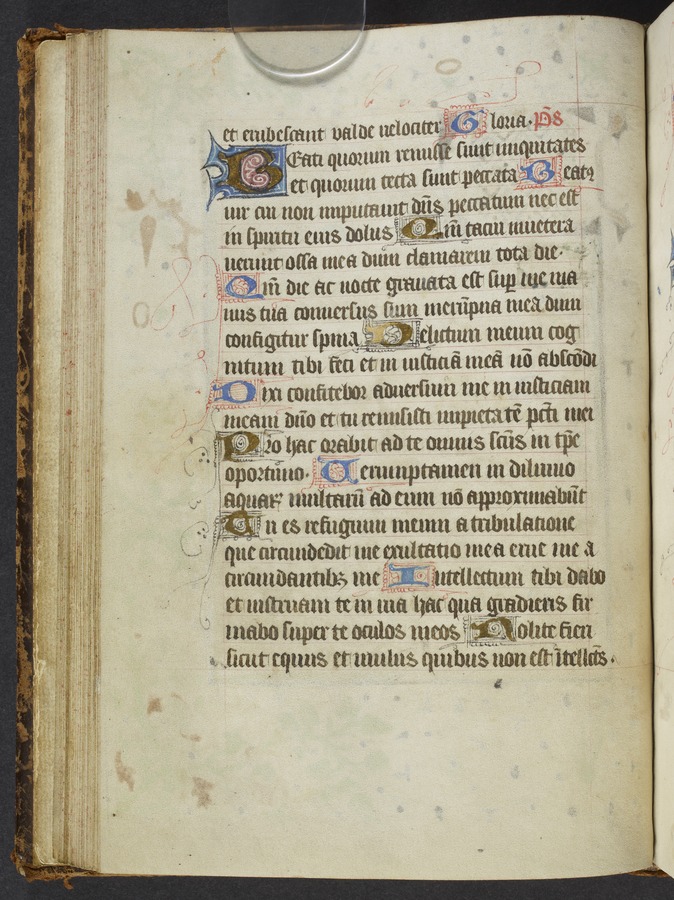 et erubescant valde velociter Gloria. p̄s
Beati quorum remisse sunt iniquitates
et quorum tecta sunt peccata Beatꝰ
uir cui non imputauit dn̄s peccatum nec est
in spiritu eius dolus Qm̄ tacui inuetera
uerunt ossa mea dum clamarem tota die.
Qm̄ die ac nocte grauata est sup̄ me ma
nus tua conuersus sum in erūpna mea dum
configitur spina Delictum meum cog
nitum tibi feci et in iusticiā meā nō abscōdi
Dixi confitebor aduersum me iniusticiam
meam dn̄o et tu remisisti impietatē pcc̄ti mei
Pro hac orabit ad te omnis scūs in tp̄e
oportuno. Ueruntamen in diluuio
aquaꝝ multarū ad eum nō approximabūt
Tu es refugium meum a tribulatione
que circundedit me exultatio mea erue me a
circundantibꝫ me Intellectum tibi dabo
et instruam te in uia hac qua gradieris fir
mabo super te oculos meos Nolite fieri
sicut equus et mulus quibus non est ītellcūs.